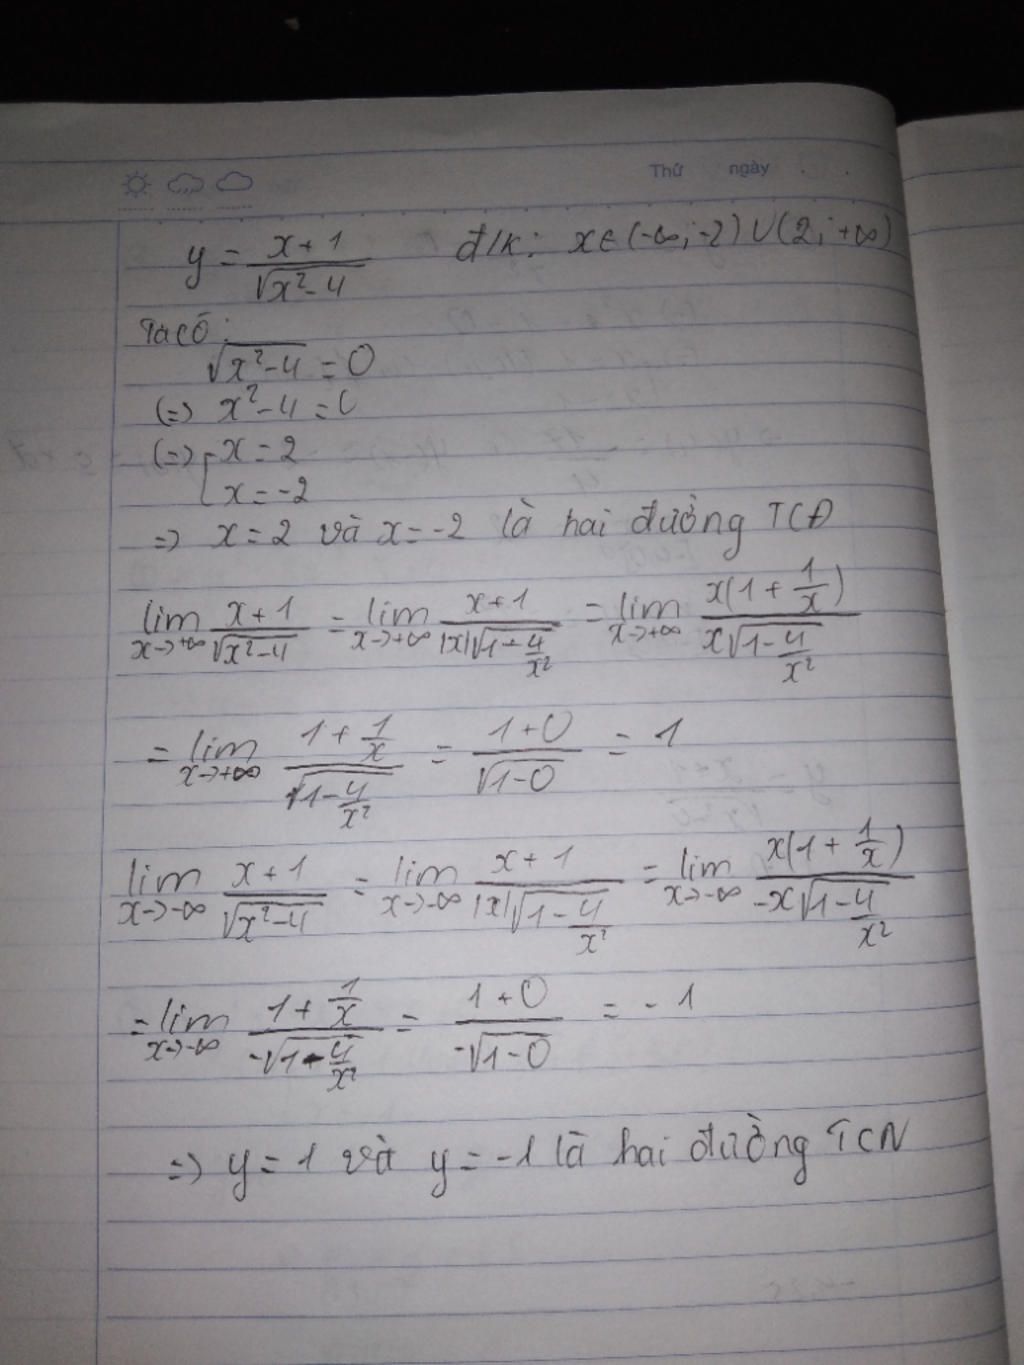 Thứ ngày
y = (x+1)/(√(x²-4)) đ/k: x ∈ (-∞; -2) ∪ (2; +∞)
Ta có:
√(x²-4) = 0
(=) x²-4 = 0
(=) [ x = 2
x = -2
=> x = 2 và x = -2 là hai đường TCĐ
lim x→+∞ (x+1)/(√(x²-4)) = lim x→+∞ (x+1)/(|x|√(1-4/x²)) = lim x→+∞ (x(1+1/x))/(x√(1-4/x²))
= lim x→+∞ (1+1/x)/(√(1-4/x²)) = (1+0)/(√(1-0)) = 1
lim x→-∞ (x+1)/(√(x²-4)) = lim x→-∞ (x+1)/(|x|√(1-4/x²)) = lim x→-∞ (x(1+1/x))/(-x√(1-4/x²))
= lim x→-∞ (1+1/x)/(-√(1-4/x²)) = (1+0)/(-√(1-0)) = -1
=> y = 1 và y = -1 là hai đường TCN